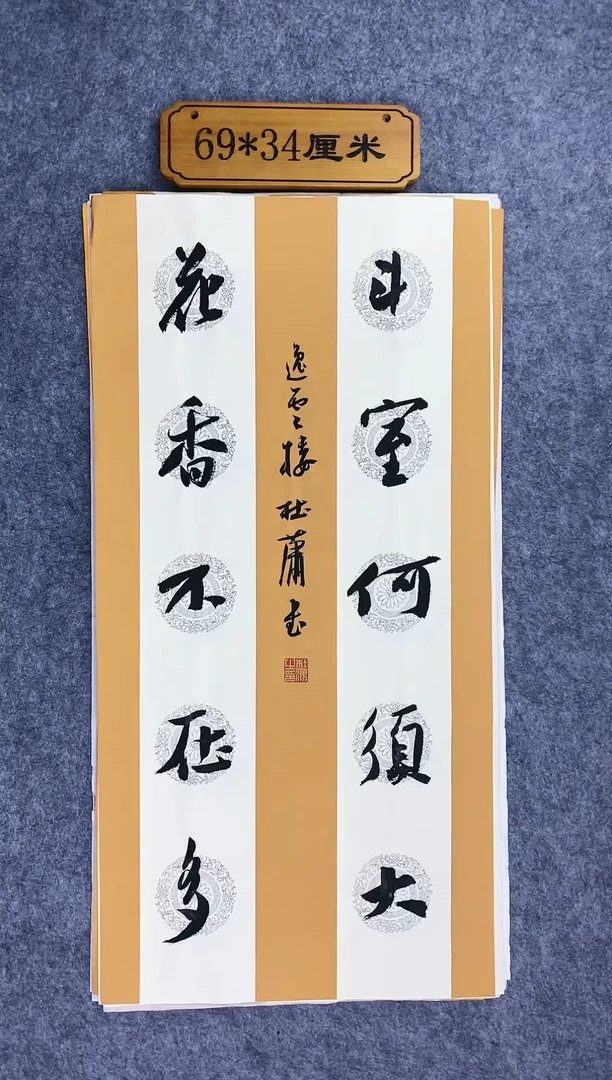 69*34厘米
斗室何須大
花香不在多
逸雲樓杜蕭书